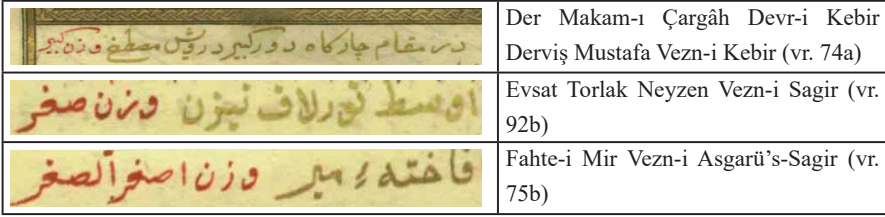 در مقام چارکاه دور کبیر درویش مصطفی وزن کبیر
Der Makam-ı Çargâh Devr-i Kebir
Derviş Mustafa Vezn-i Kebir (vr. 74a)
اوسط تورلاق نیزن وزن صغر
Evsat Torlak Neyzen Vezn-i Sagir (vr.
92b)
فاختهٔ میر وزن اصغر الصغر
Fahte-i Mir Vezn-i Asgarü’s-Sagir (vr.
75b)